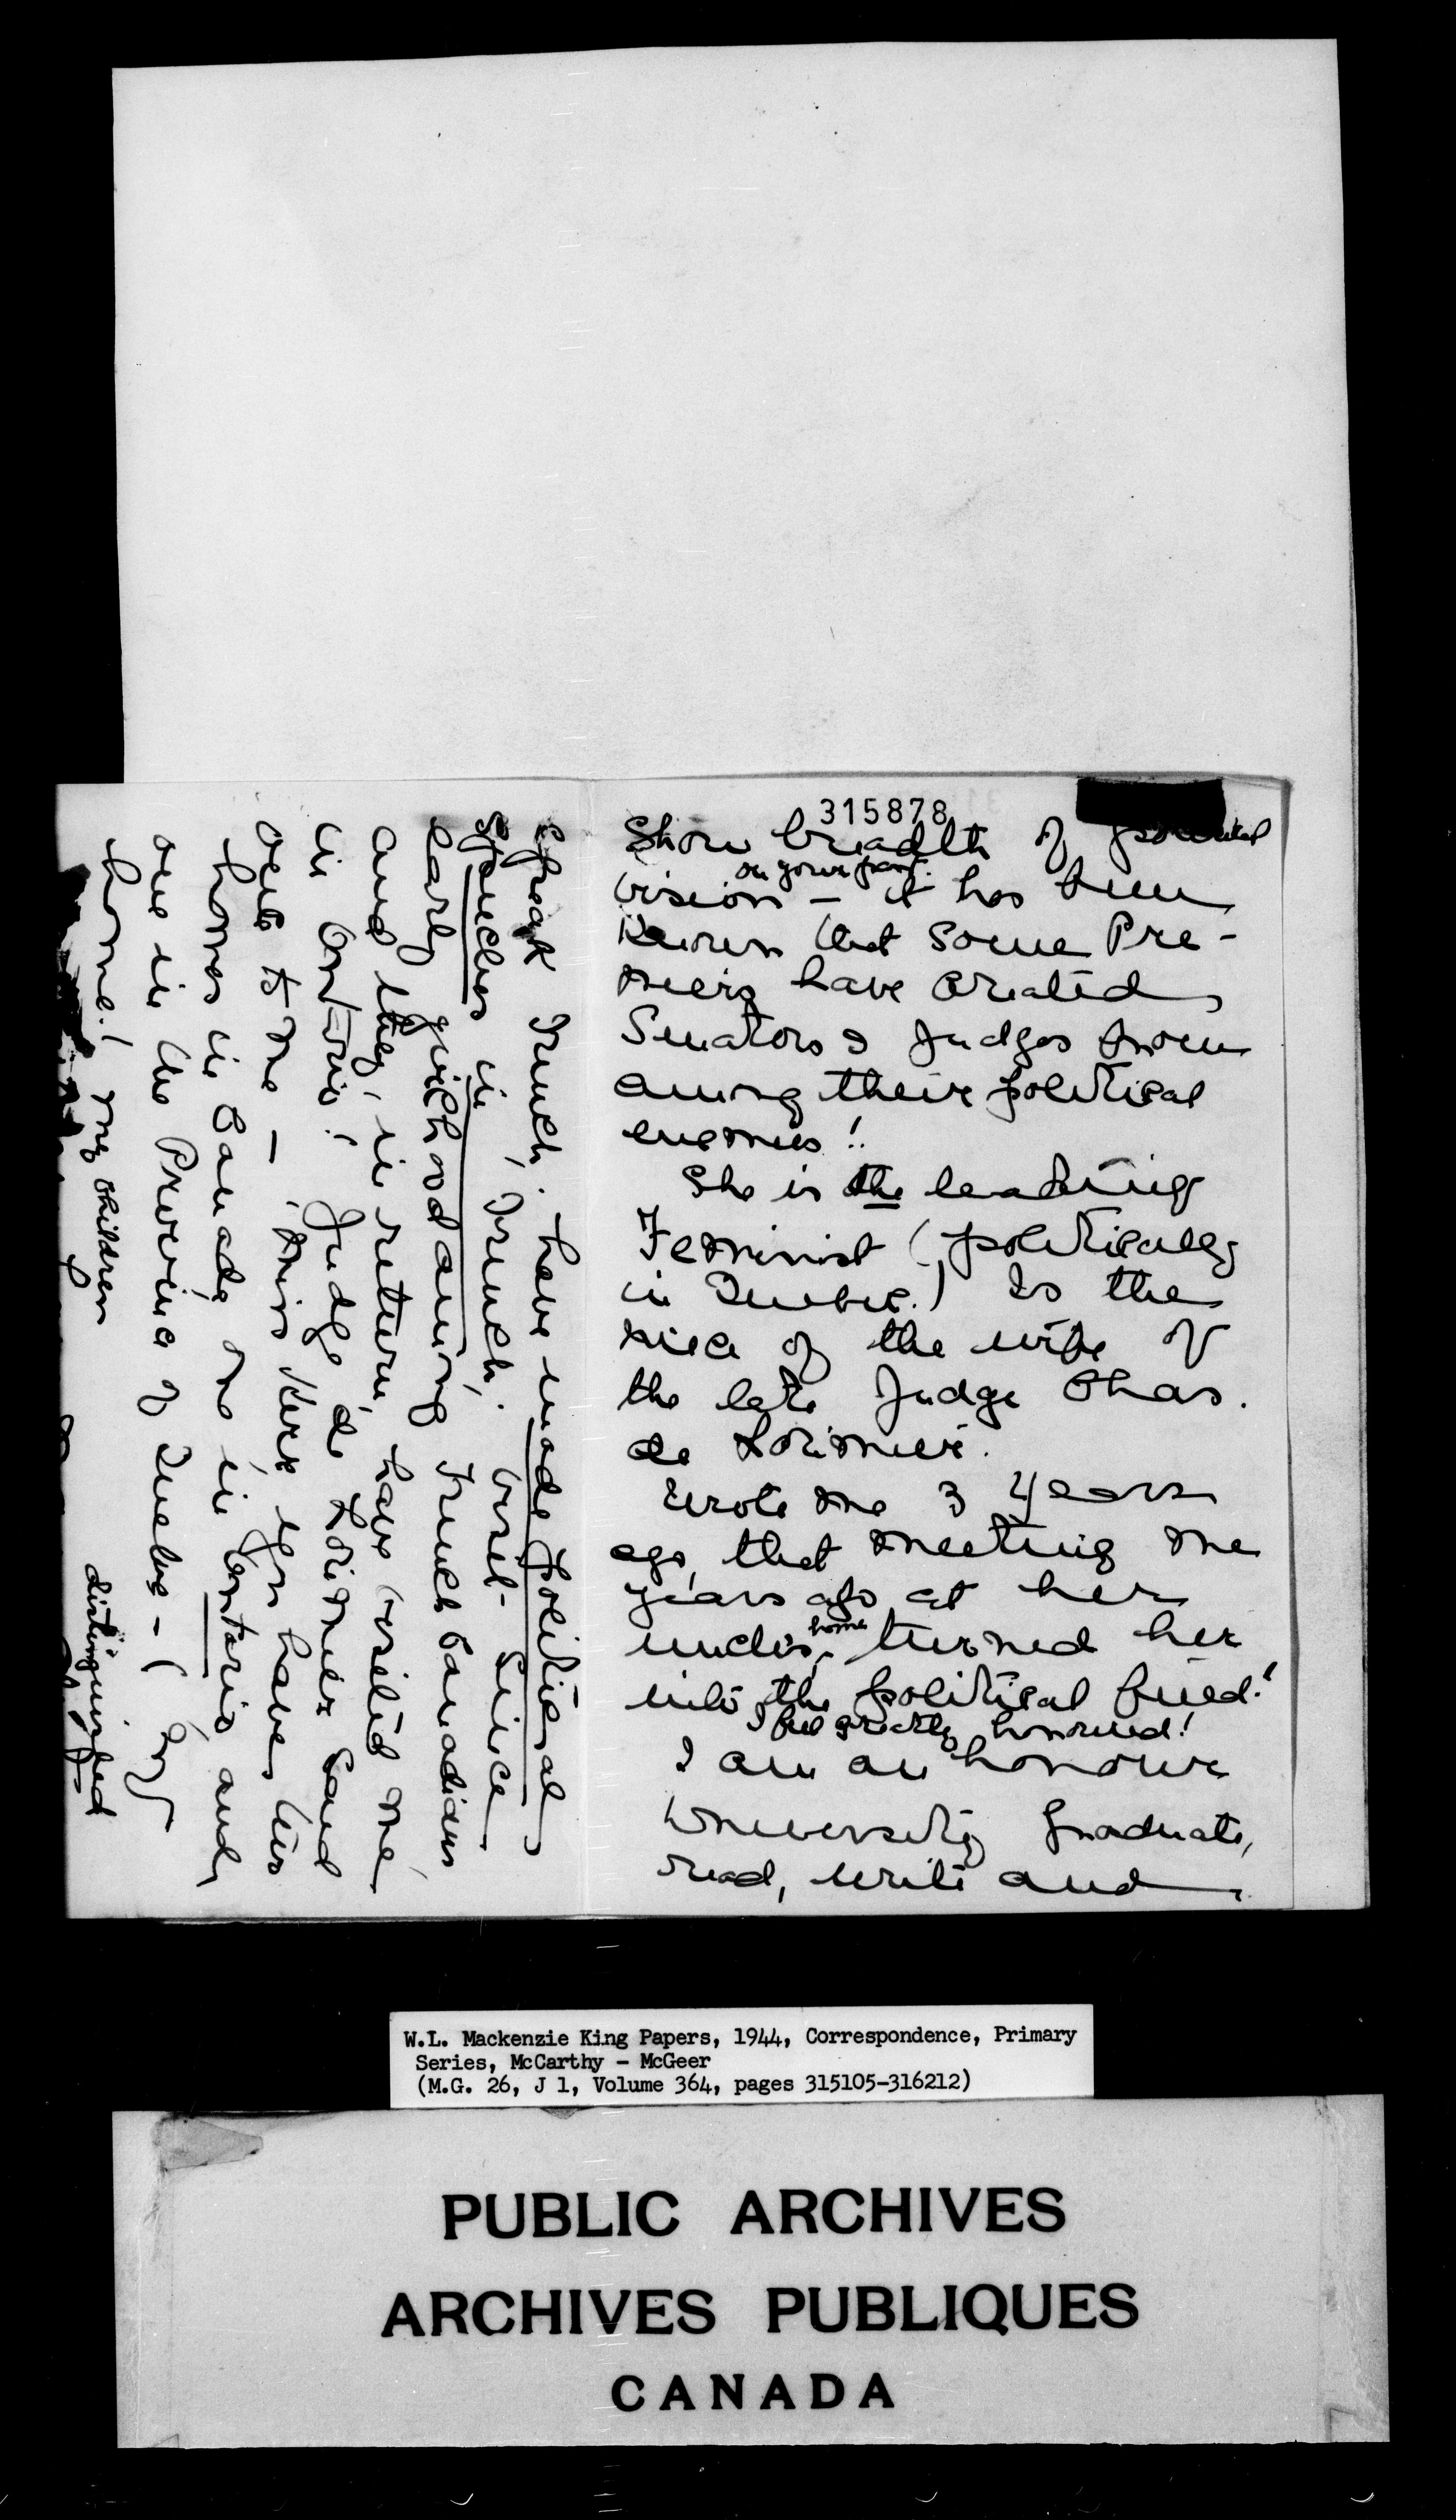 315878
Show breadth of
vision — it has been
on your part.
known that some Pre-
miers have created
Senators & Judges from
among their political
enemies!!
She is the leading
Feminist (politically
in Quebec.) Is the
niece of the wife of
the late Judge Chas.
de Lorimier.
Wrote me 3 years
ago, that meeting me
years ago at her
uncle's home turned her
into the political field!
I feel greatly honoured!
I am an honour
University graduate,
read, write and
speak French. Have made political
speeches in French. Visit - since
early girlhood among French Canadians
and they, in return, have visited me
in Ontario! Judge de Lorimier said
once to me - "Miss Kerr you have two
homes in Canada, one in Ontario and
one in the Province of Quebec - (my
home.) my children
distinguished
W.L. Mackenzie King Papers, 1944, Correspondence, Primary
Series, McCarthy - McGeer
(M.G. 26, J 1, Volume 364, pages 315105-316212)
PUBLIC ARCHIVES
ARCHIVES PUBLIQUES
CANADA